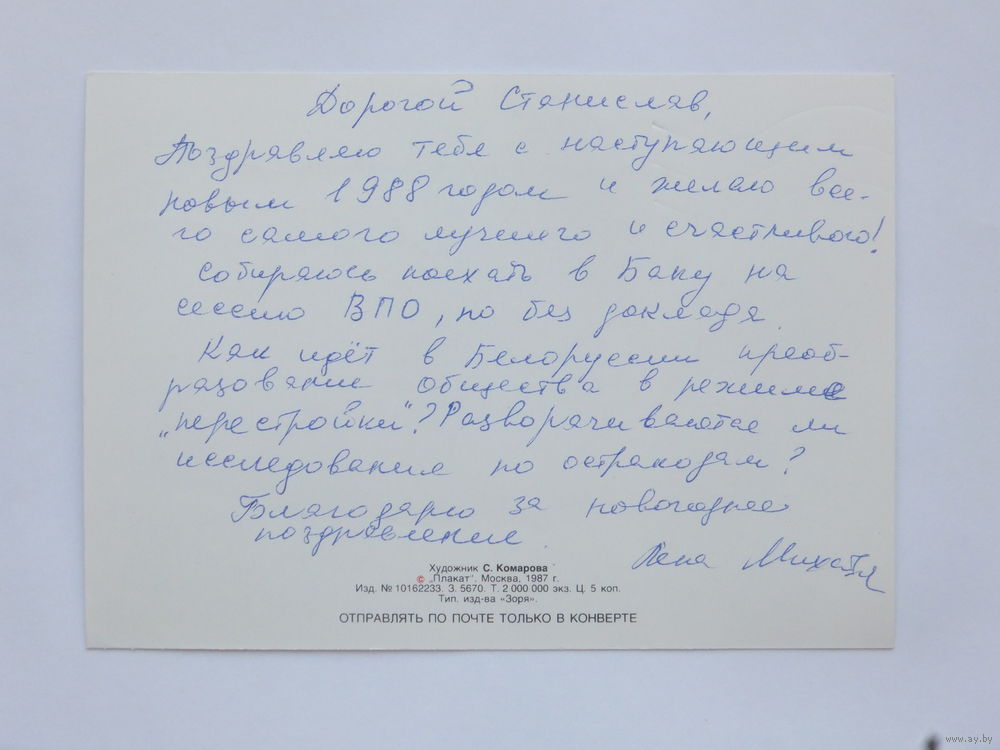 Дорогой Станислав,
Поздравляю тебя с наступающим
новым 1988 годом и желаю все-
го самого лучшего и счастливого!
Собираюсь поехать в Баку на
сессию ВПО, но без доклада.
Как идёт в Белоруссии преоб-
разование общества в режиме
„перестройки"? Разворачиваются ли
исследования по остракодам?
Благодарю за новогоднее
поздравление.
Лена
Художник С. Комарова
© „Плакат". Москва, 1987 г.
Изд. № 10162233. З. 5670. Т. 2 000 000 экз. Ц. 5 коп.
Тип. изд-ва «Зоря».
ОТПРАВЛЯТЬ ПО ПОЧТЕ ТОЛЬКО В КОНВЕРТЕ
www.ay.by